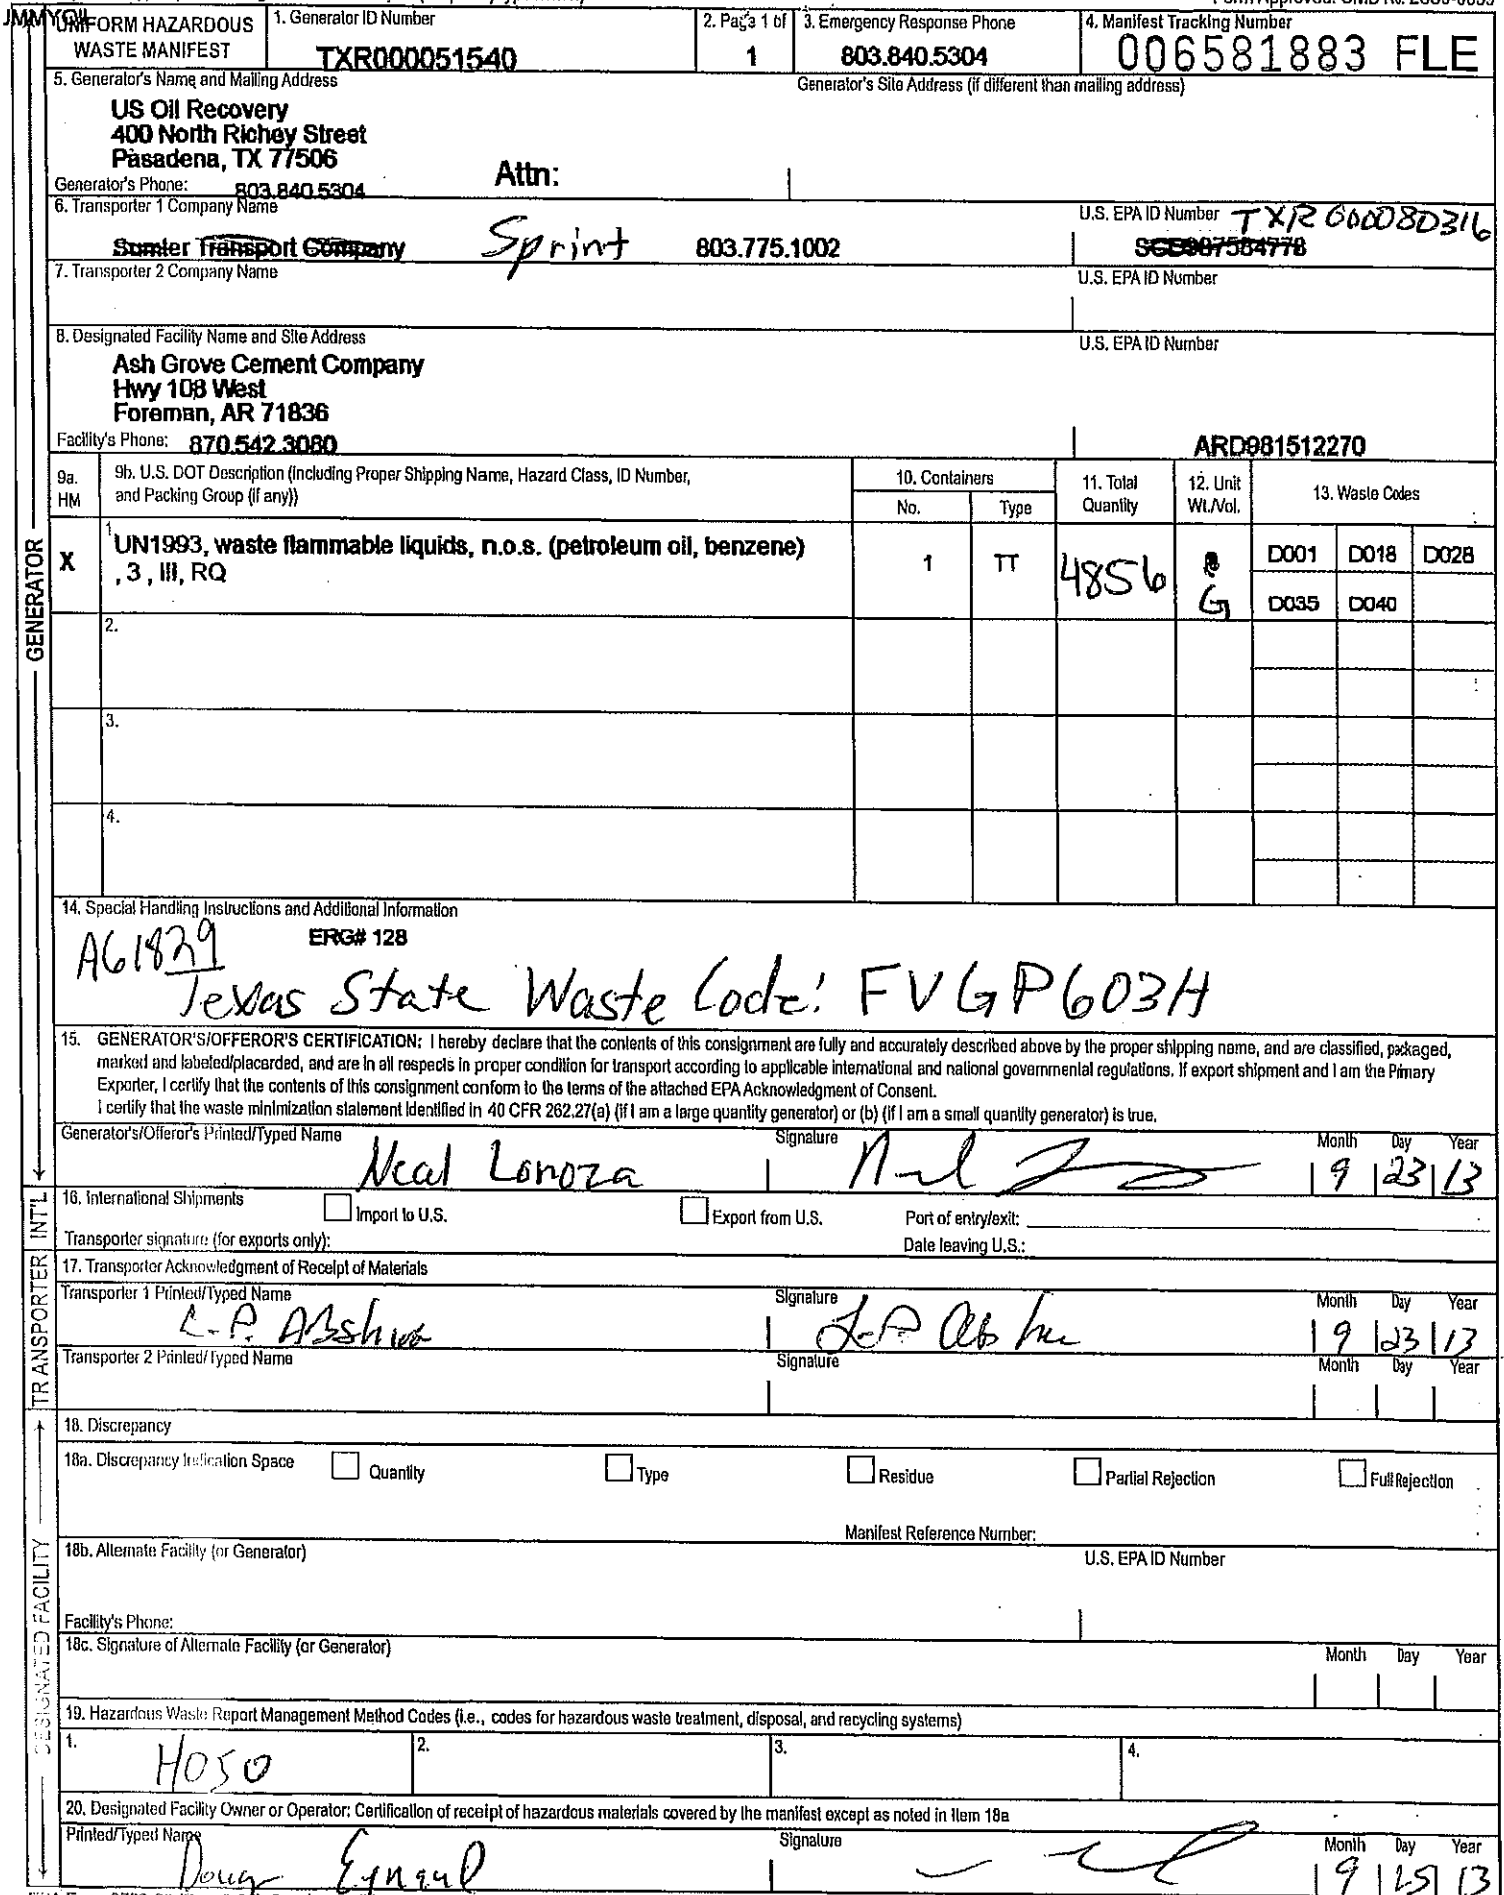 JMMYOIL
UNIFORM HAZARDOUS WASTE MANIFEST
1. Generator ID Number
TXR000051540
2. Page 1 of
1
3. Emergency Response Phone
803.840.5304
4. Manifest Tracking Number
006581883 FLE
5. Generator's Name and Mailing Address
Generator's Site Address (if different than mailing address)
US Oil Recovery
400 North Richey Street
Pasadena, TX 77506
Attn:
Generator's Phone: 803.840.5304
6. Transporter 1 Company Name
Sumter Transport Company Sprint 803.775.1002
U.S. EPA ID Number TXR000080316
7. Transporter 2 Company Name
U.S. EPA ID Number
8. Designated Facility Name and Site Address
U.S. EPA ID Number
Ash Grove Cement Company
Hwy 108 West
Foreman, AR 71836
Facility's Phone: 870.542.3080
ARD981512270
9a. HM
9b. U.S. DOT Description (Including Proper Shipping Name, Hazard Class, ID Number, and Packing Group (if any))
10. Containers
No.
Type
11. Total Quantity
12. Unit Wt./Vol.
13. Waste Codes
X
1
UN1993, waste flammable liquids, n.o.s. (petroleum oil, benzene)
, 3 , III, RQ
1
TT
4856
G
D001 D018 D028
D035 D040
2.
3.
4.
14. Special Handling Instructions and Additional Information
ERG# 128
AG1829
Texas State Waste Code: FVGP603H
15. GENERATOR'S/OFFEROR'S CERTIFICATION: I hereby declare that the contents of this consignment are fully and accurately described above by the proper shipping name, and are classified, packaged,
marked and labeled/placarded, and are in all respects in proper condition for transport according to applicable international and national governmental regulations. If export shipment and I am the Primary
Exporter, I certify that the contents of this consignment conform to the terms of the attached EPA Acknowledgment of Consent.
I certify that the waste minimization statement identified in 40 CFR 262.27(a) (if I am a large quantity generator) or (b) (if I am a small quantity generator) is true.
Generator's/Offeror's Printed/Typed Name
Signature
Month Day Year
Neal Lonoza
9 23 13
16. International Shipments
Import to U.S.
Export from U.S.
Port of entry/exit:
Transporter signature (for exports only):
Date leaving U.S.:
17. Transporter Acknowledgment of Receipt of Materials
Transporter 1 Printed/Typed Name
Signature
Month Day Year
L.P.
L.P.
9 23 13
Transporter 2 Printed/Typed Name
Signature
Month Day Year
18. Discrepancy
18a. Discrepancy Indication Space
Quantity
Type
Residue
Partial Rejection
Full Rejection
Manifest Reference Number:
18b. Alternate Facility (or Generator)
U.S. EPA ID Number
Facility's Phone:
18c. Signature of Alternate Facility (or Generator)
Month Day Year
19. Hazardous Waste Report Management Method Codes (i.e., codes for hazardous waste treatment, disposal, and recycling systems)
1.
H050
2.
3.
4.
20. Designated Facility Owner or Operator: Certification of receipt of hazardous materials covered by the manifest except as noted in Item 18a
Printed/Typed Name
Signature
Month Day Year
Doug
9 25 13
GENERATOR
TRANSPORTER
INT'L
DESIGNATED FACILITY